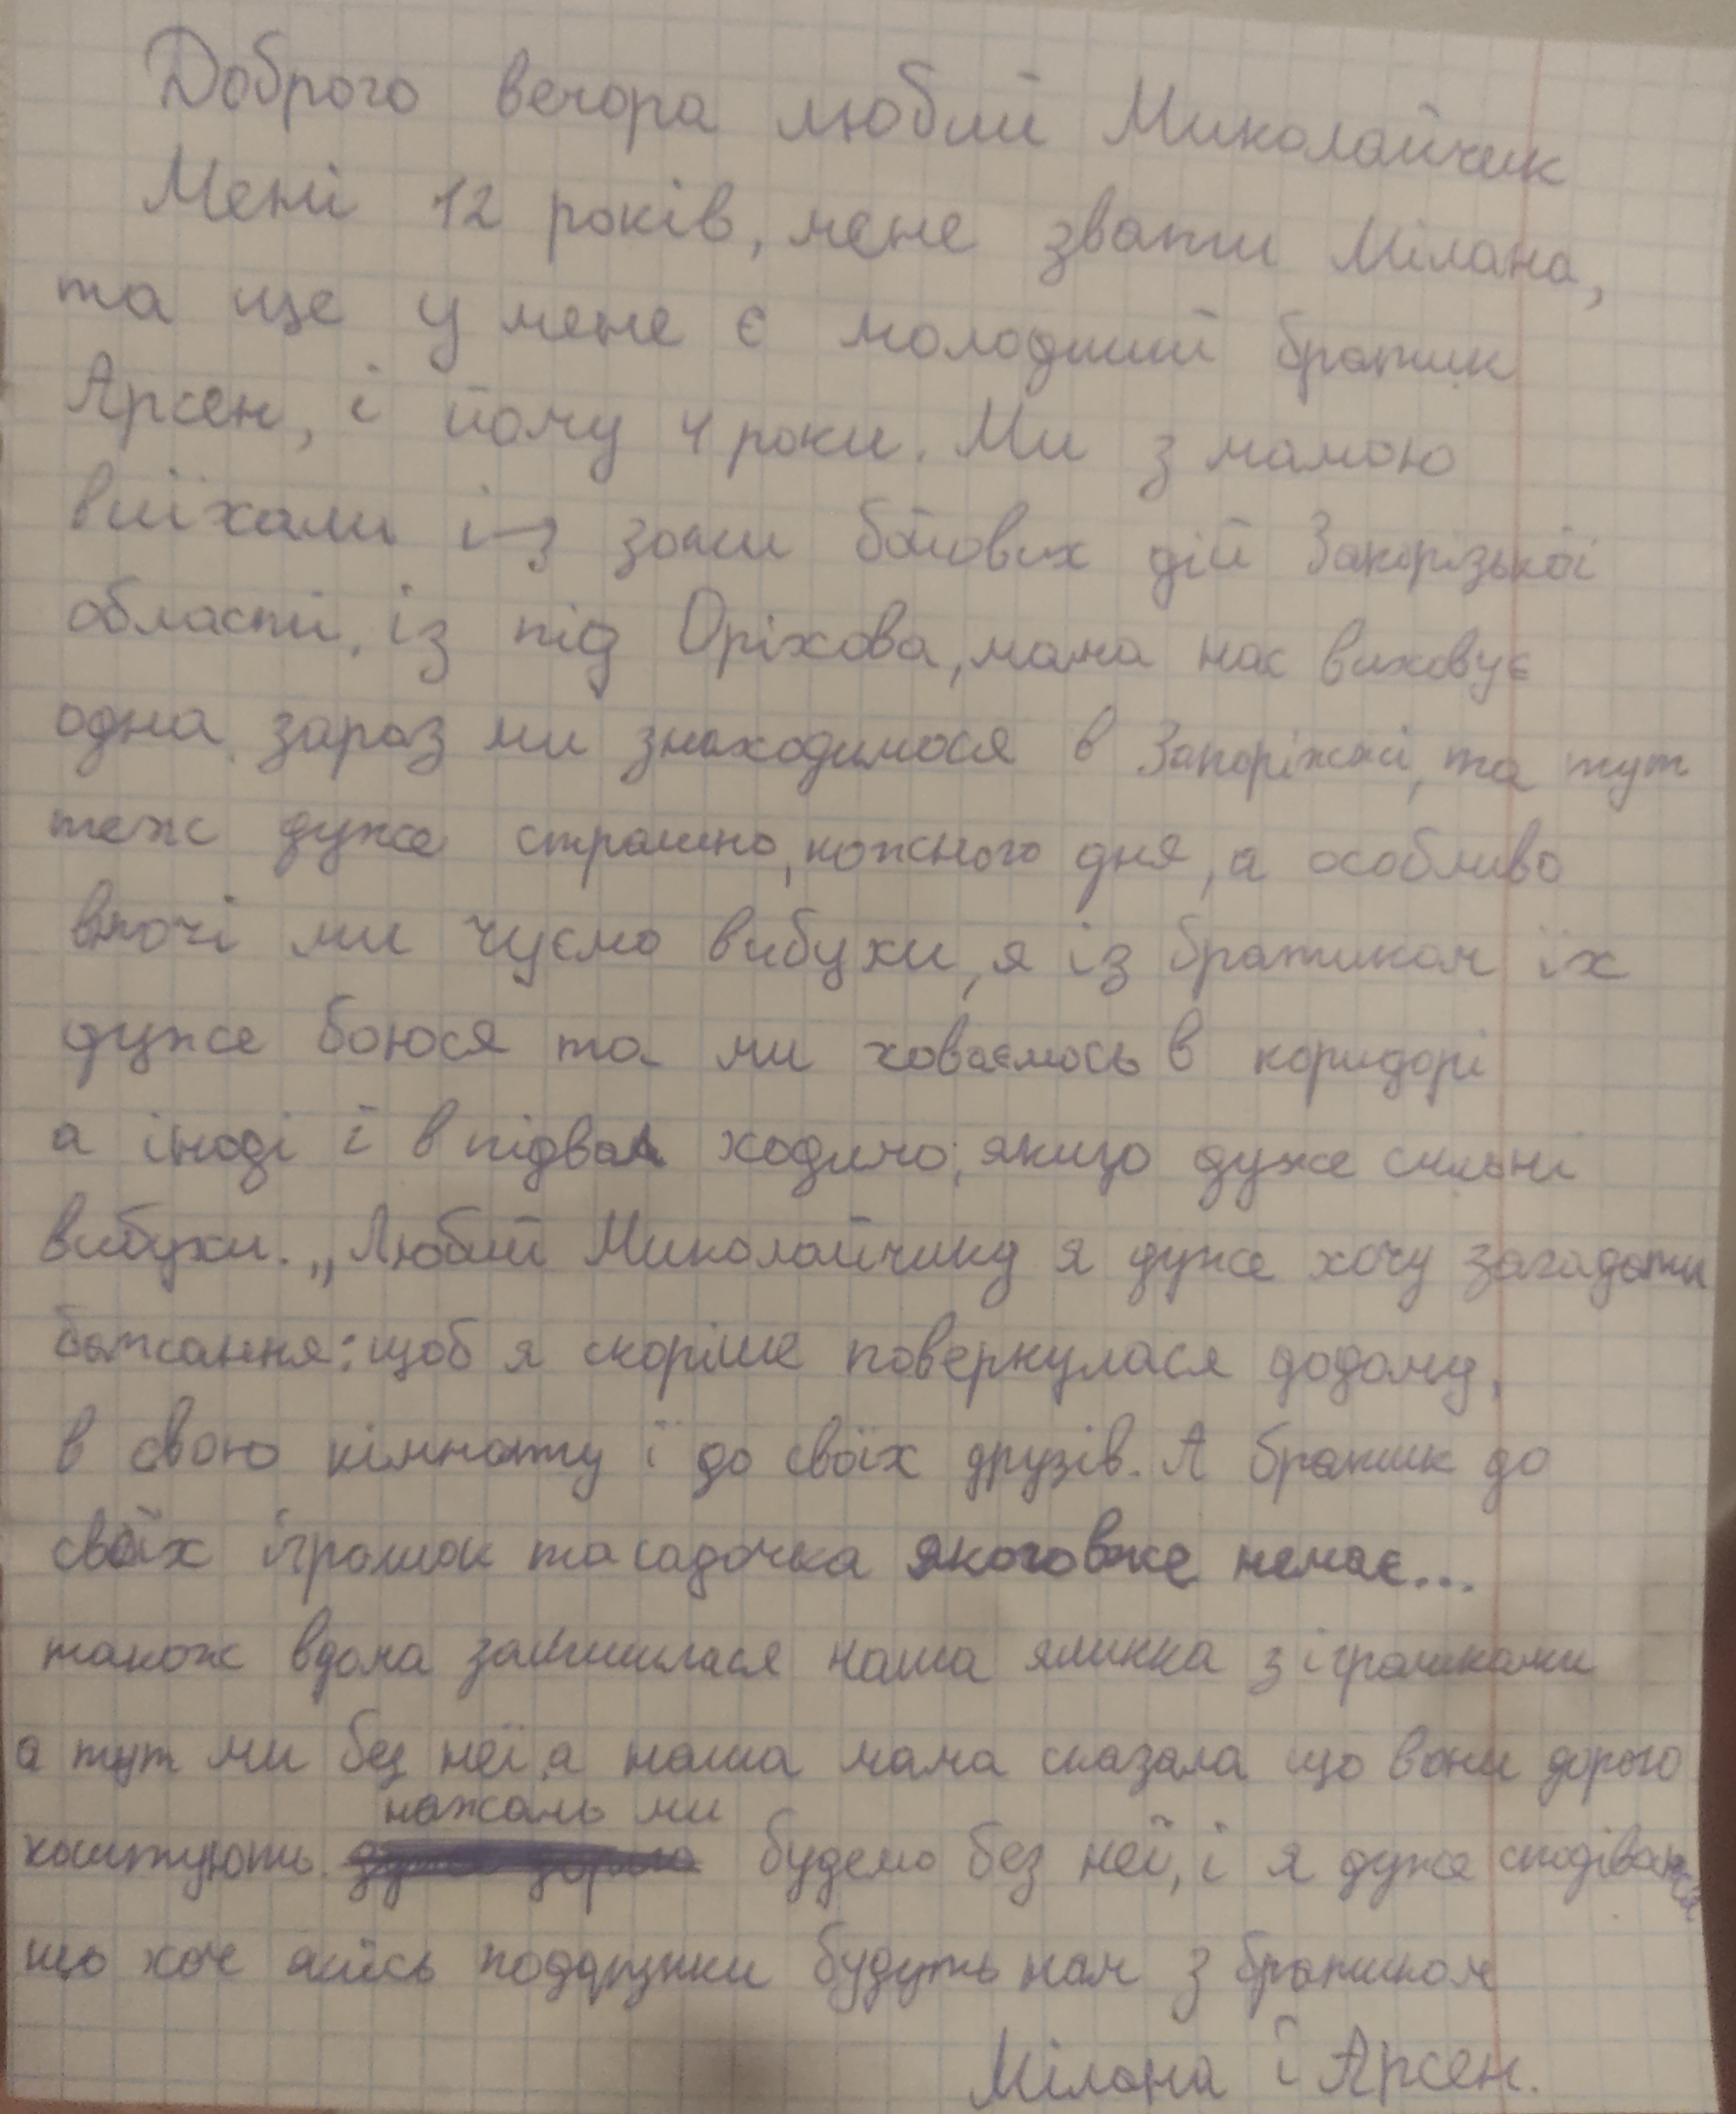 Доброго вечора любий Миколайчик
Мені 12 років, мене звати Мілана,
та ще у мене є молодший братик
Арсен, і йому 4 роки. Ми з мамою
виїхали із зони бойових дій Запорізької
області, із під Оріхова, мама нас виховує
одна, зараз ми знаходимося в Запоріжжі, та тут
теж дуже страшно, кожного дня, а особливо
вночі ми чуємо вибухи, я із братиком їх
дуже боюся та ми ховаємось в коридорі
а іноді і в підвал ходимо, якщо дуже сильні
вибухи. „Любий Миколайчику я дуже хочу загадати
бажання: щоб я скоріше повернулася додому,
в свою кімнату і до своїх друзів. А братик до
своїх іграшок та садочка якого вже немає...
також вдома залишилася наша ялинка з іграшками
а тут ми без неї, а наша мама сказала що вони дорого
нажаль ми
коштують. будемо без неї, і я дуже сподіваюся
що хоч якісь подарунки будуть нам з братиком
Мілана і Арсен.